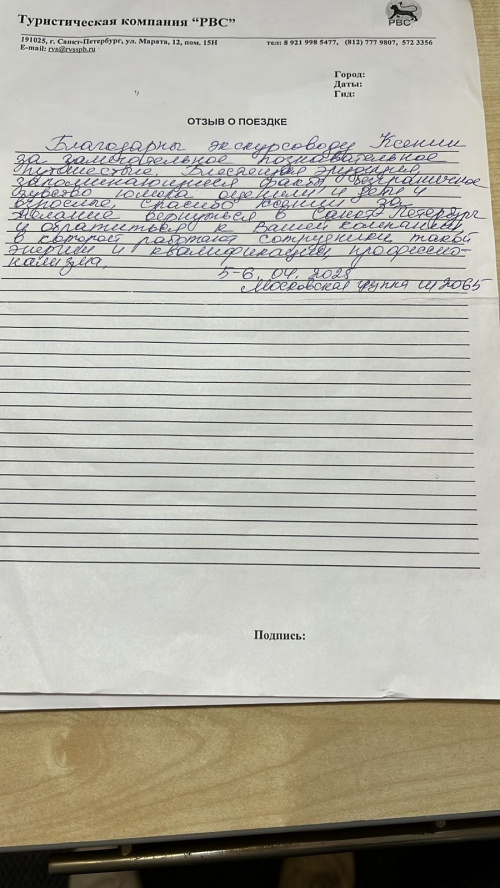 Туристическая компания “РВС”
РВС
191025, г. Санкт-Петербург, ул. Марата, 12, пом. 15Н
тел: 8 921 998 5477, (812) 777 9807, 572 3356
E-mail: rvs@rvsspb.ru
Город:
Даты:
Гид:
ОТЗЫВ О ПОЕЗДКЕ
Благодарны экскурсоводу Ксении
за замечательное познавательное
путешествие. Блестящая эрудиция,
запоминающиеся факты, безграничное
чувство юмора оценили и дети и
взрослые. Спасибо Ксении за
желание вернуться в Санкт-Петербург
и обратиться к Вашей компании,
в которой работают сотрудники такой
энергии и квалификации, профессио-
нализма.
5-6.04.2025
Московская группа Ш2065
Подпись: